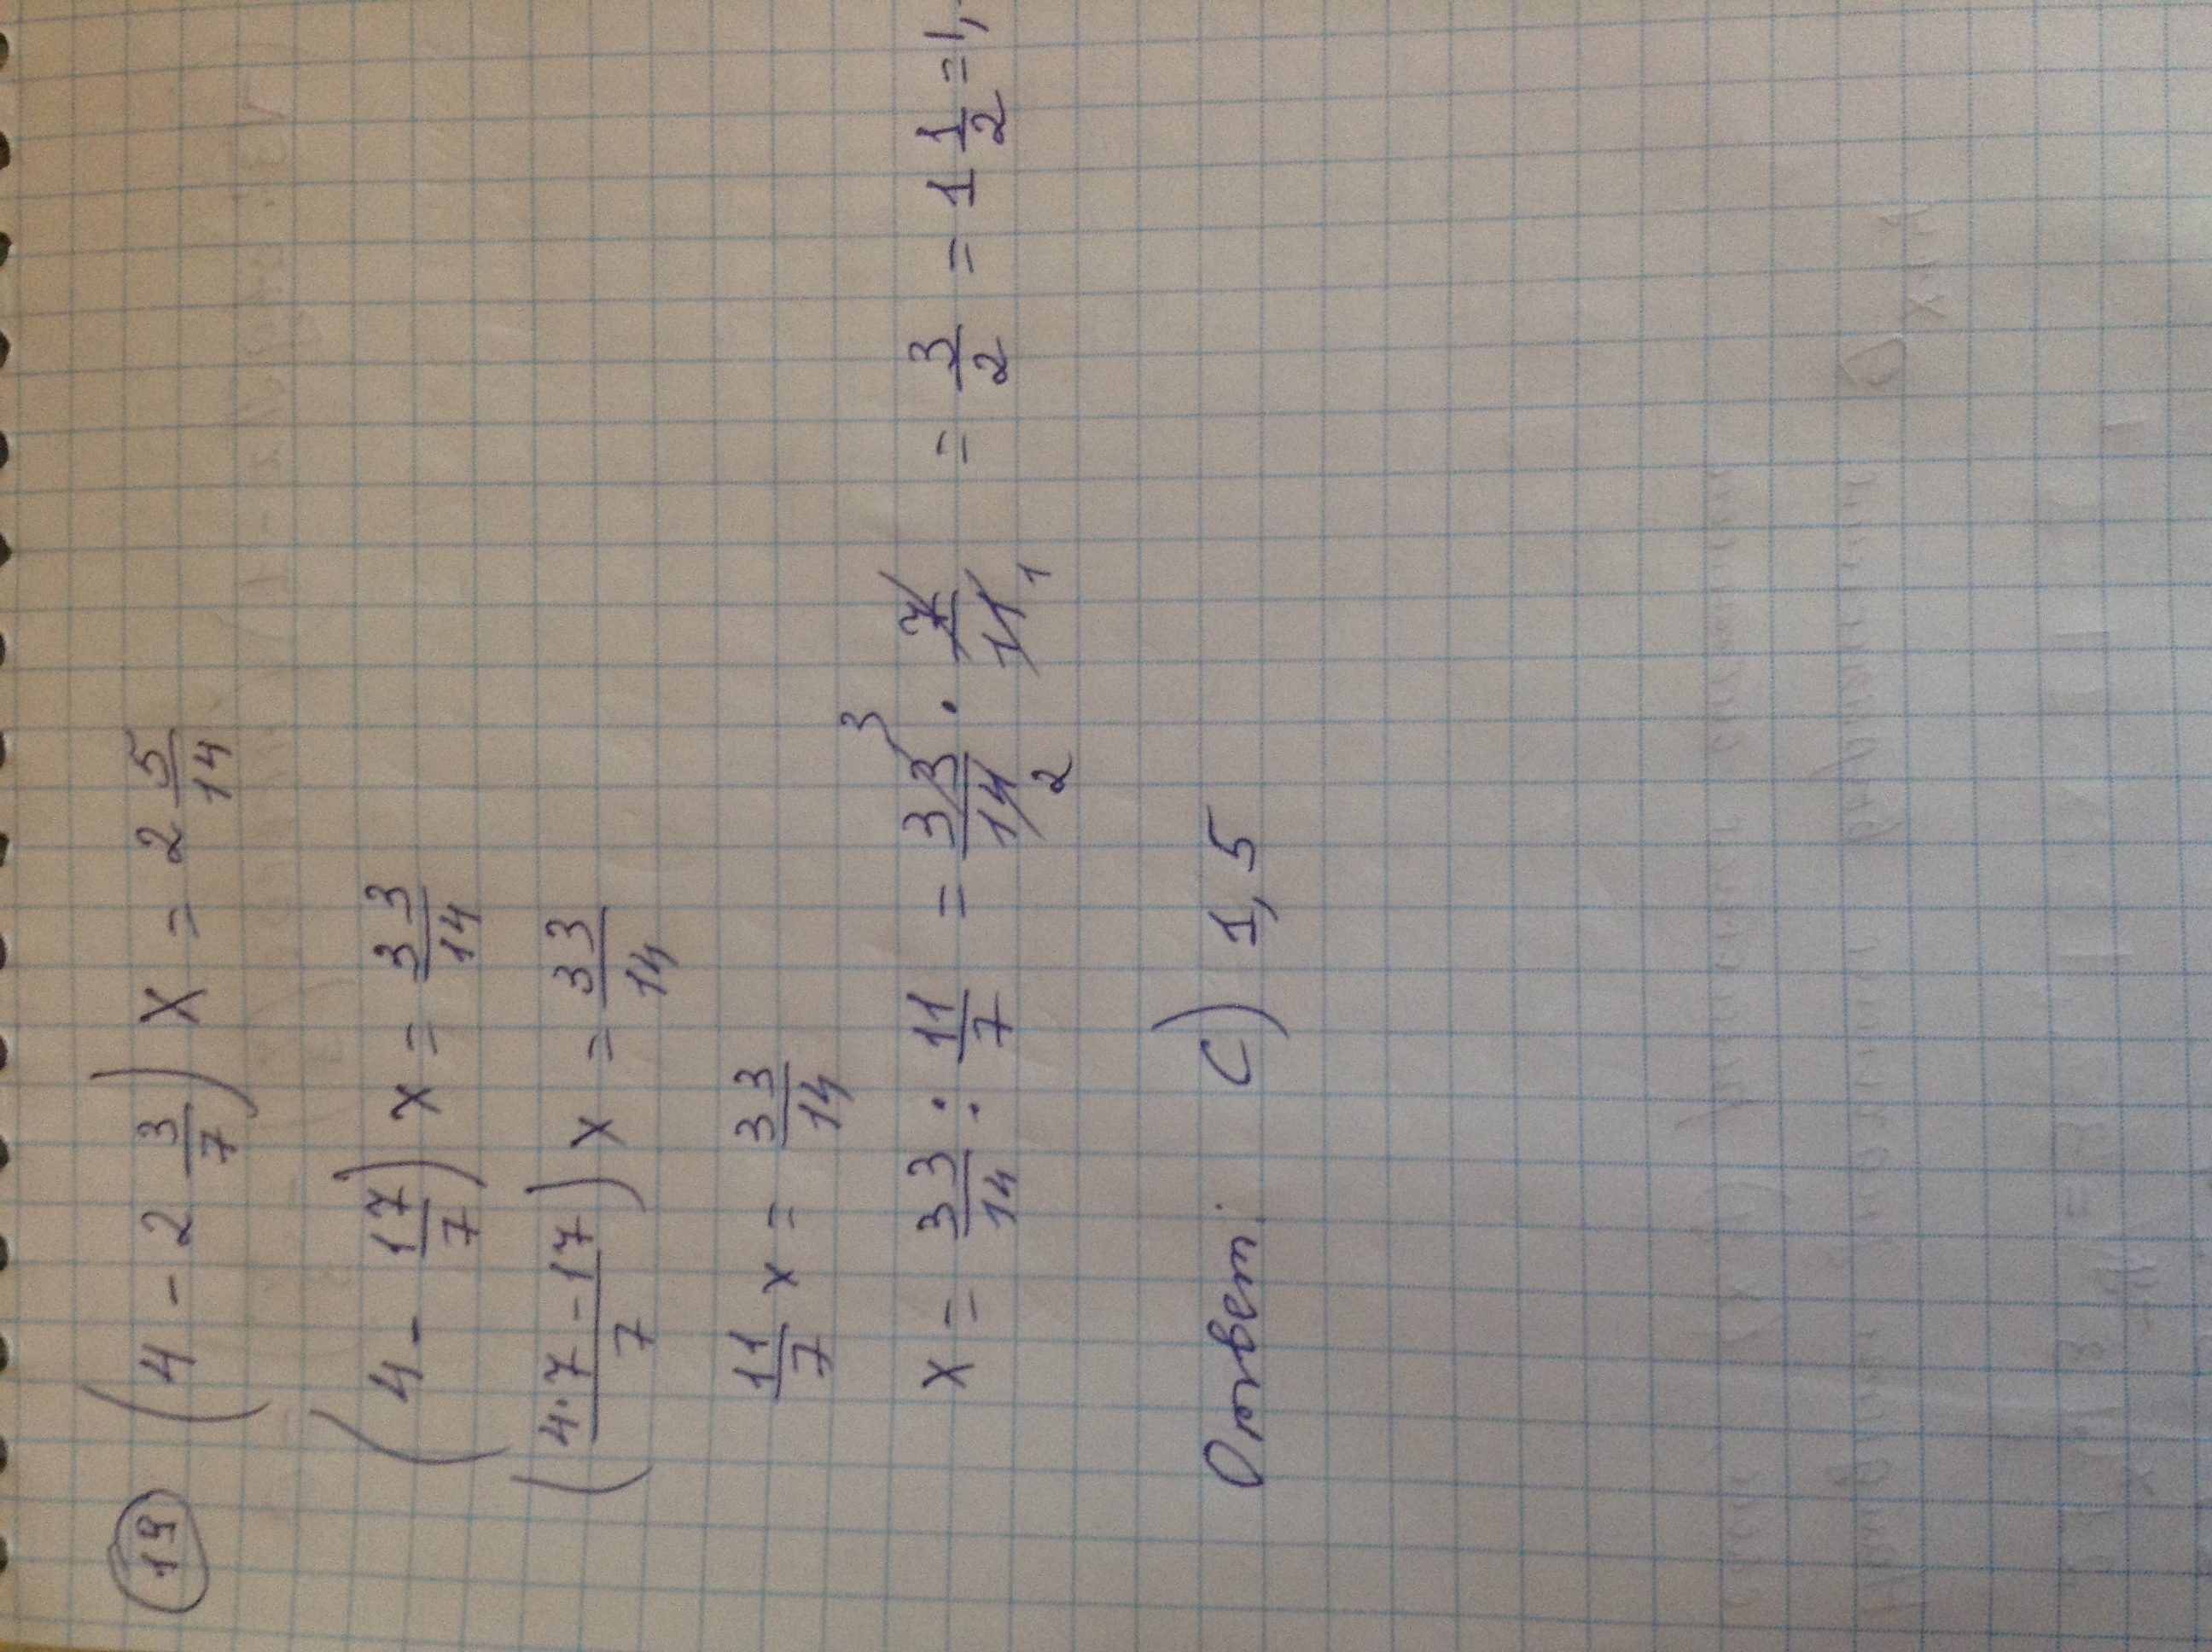 19 (4 - 2 3/7) x = 2 5/14
(4 - 17/7) x = 33/14
(4·7-17/7) x = 33/14
11/7 x = 33/14
x = 33/14 : 11/7 = 33/14 3 2 · 7/11 1 = 3/2 = 1 1/2 = 1,
Ответ: C) 1,5